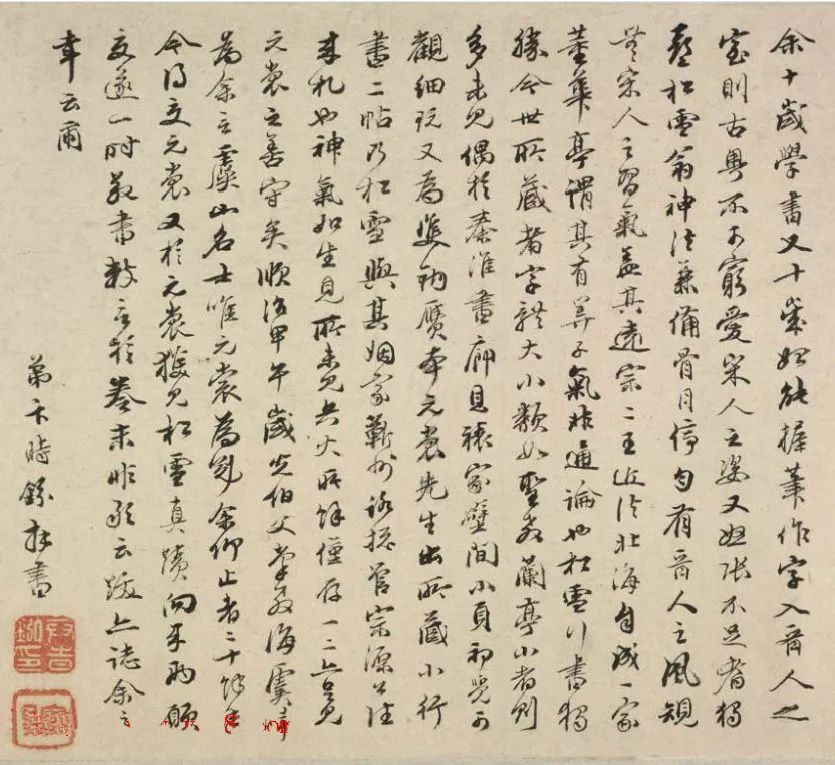 余十歲學書又十歲始能握筆作字入晉人之
室則古奧不可窮愛宋人之姿又怒張不足者獨
趙松雪翁神法兼備骨肉停勻有晉人之風規
無宋人之習氣蓋其遠宗二王近法北海自成一家
董華亭謂其有算子氣非通論也松雪行書獨
勝今世所藏者字體大小類如聖教蘭亭小者則
多未見偶於秦淮書廊見裱家壁間小頁初覺可
觀細玩又為雙鉤贗本元裳先生出所藏小行
書二帖乃松雪與其姻家蘄州路總管宗源公往
來札也神氣如生見所未見兵火所餘僅存一二亦足見
元裳之善守矣順治甲午歲先伯父掌教海虞
為余言虞山名士唯元裳為冠余仰止者二十餘年
今得交元裳又於元裳獲見松雪真蹟向來兩願
交遂一時敬書數言於卷末非敢云跋亦誌余之
幸云爾
弟卞時鉉拜書